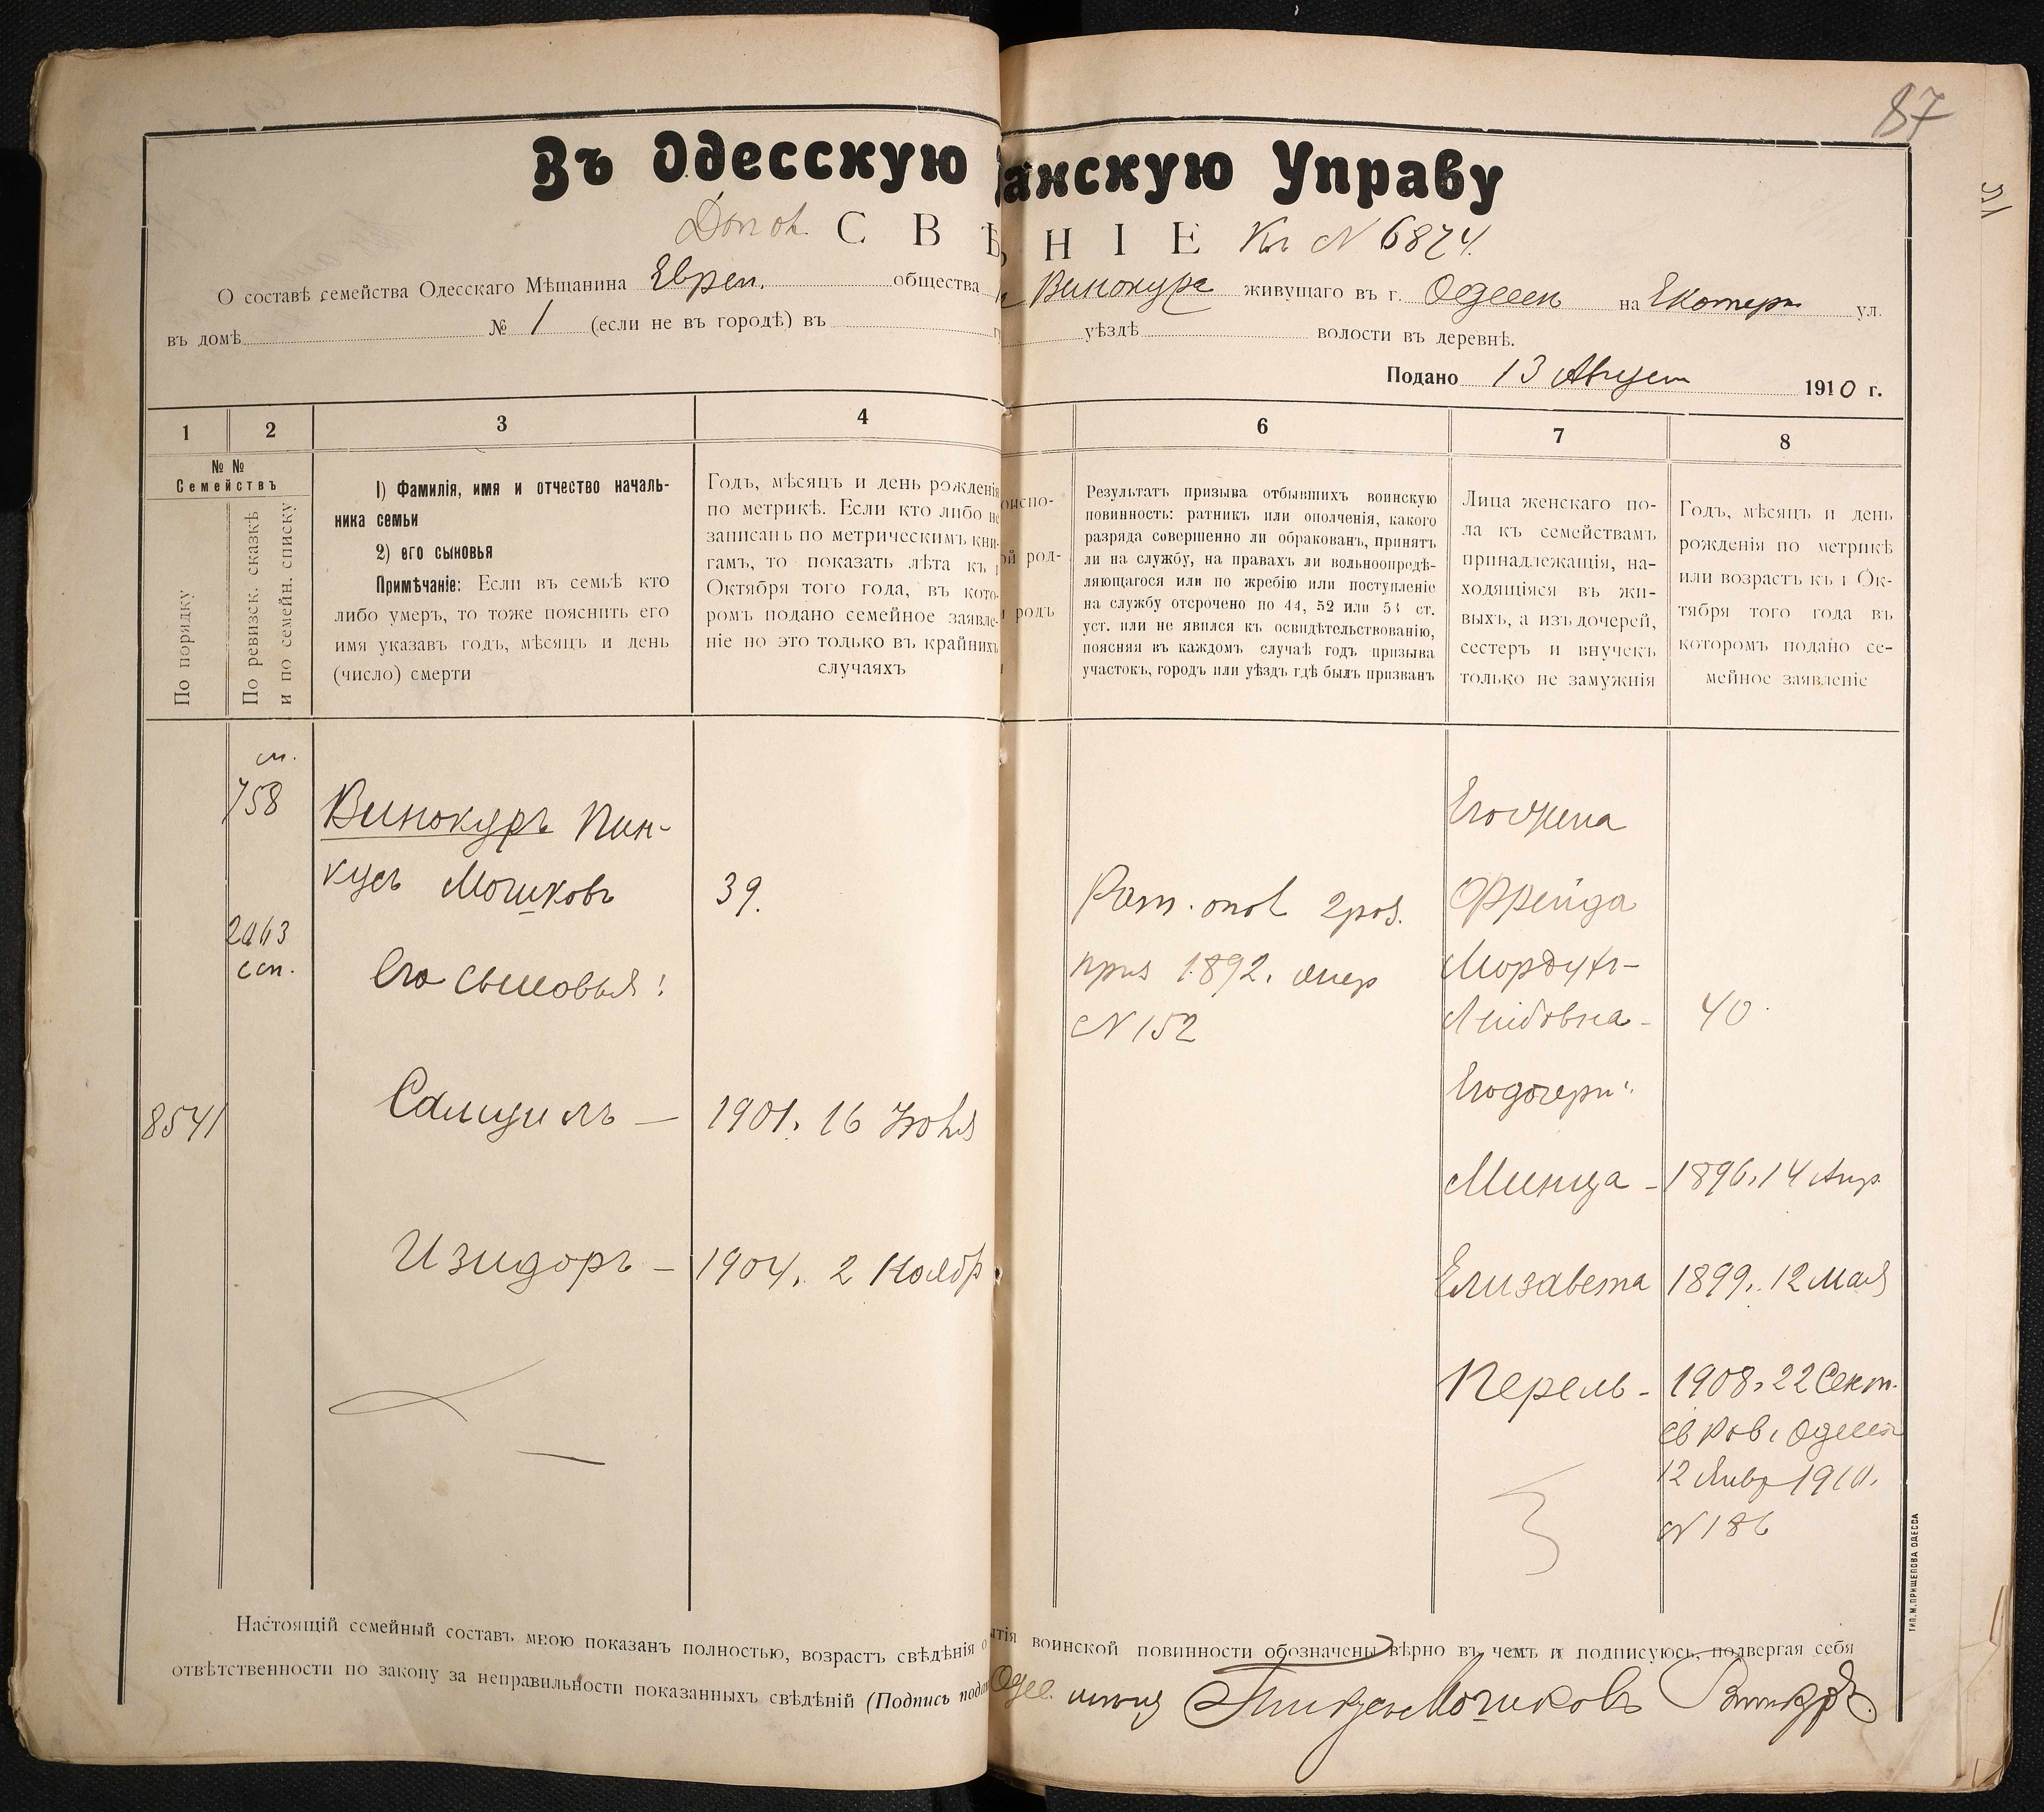 87
Въ Одесскую анскую Управу
С В Ѣ Н І Е Кн N 6874.
О составѣ семейства Одесскаго Мѣщанина Евреи. общества Винокура живущаго въ г. Одессе на Екатери ул.
въ домѣ № 1 (если не въ городѣ) въ уѣздѣ волости въ деревнѣ.
Подано 13 Август 1910 г.
1 2 3 4 6 7 8
№ №
Семействъ
По порядку
По ревизск. сказкѣ
и по семейн. списку
1) Фамилія, имя и отчество началь-
ника семьи
2) его сыновья
Примѣчаніе: Если въ семьѣ кто
либо умеръ, то тоже пояснить его
имя указавъ годъ, мѣсяцъ и день
(число) смерти
Годъ, мѣсяцъ и день рожденія
по метрикѣ. Если кто либо не
записанъ по метрическимъ кни-
гамъ, то показать лѣта къ 1
Октября того года, въ кото-
ромъ подано семейное заявле-
ніе но это только въ крайнихъ
случаяхъ
испо-
ой род-
родъ
Результатъ призыва отбывшихъ воинскую
повинность: ратникъ или ополченія, какого
разряда совершенно ли обракованъ, принятъ
ли на службу, на правахъ ли вольноопредѣ-
ляющагося или по жребію или поступленіе
на службу отсрочено по 44, 52 или 53 ст.
уст. или не явился къ освидѣтельствованію,
поясняя въ каждомъ случаѣ годъ призыва
участокъ, городъ или уѣздъ гдѣ былъ призванъ
Лица женскаго по-
ла къ семействамъ
принадлежащія, на-
ходящіяся въ жи-
выхъ, а изъ дочерей,
сестеръ и внучекъ
только не замужнія
Годъ, мѣсяцъ и день
рожденія по метрикѣ
или возрастъ къ 1 Ок-
тября того года въ
которомъ подано се-
мейное заявленіе
см.
758
Винокуръ Пин-
кусъ Мошковъ 39.
2463
ссп.
Его сыновья:
8541
Самуилъ — 1901. 16 Іюля
Изидоръ — 1904. 2 Ноябр
Рат. опол 2 раз.
приз 1892.
N 152
Его жена
Фрейда
Мордухъ-
Лейбовна - 40
Его дочери:
Минца - 1896. 14 Апр
Елизавета 1899. 12 Мая
Перель - 1908. 22 Сент.
св Рав. Одессы
12 Янвр 1910.
N 186
Настоящій семейный составъ мною показанъ полностью, возрастъ свѣдѣнія о ытія воинской повинности обозначены вѣрно въ чемъ и подписуюсь, подвергая себя
отвѣтственности по закону за неправильности показанныхъ свѣдѣній (Подпись пода Одес. мѣщ Пинкусъ Мошковъ Винокуръ
ТИП. М. ПРИЩЕПОВА ОДЕССА